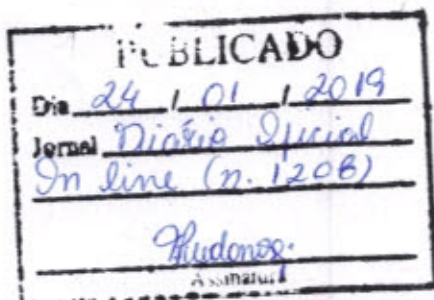 PUBLICADO
Dia 24 / 01 / 2019
Jornal Diário Oficial
On line (n. 1206)
Assinatura